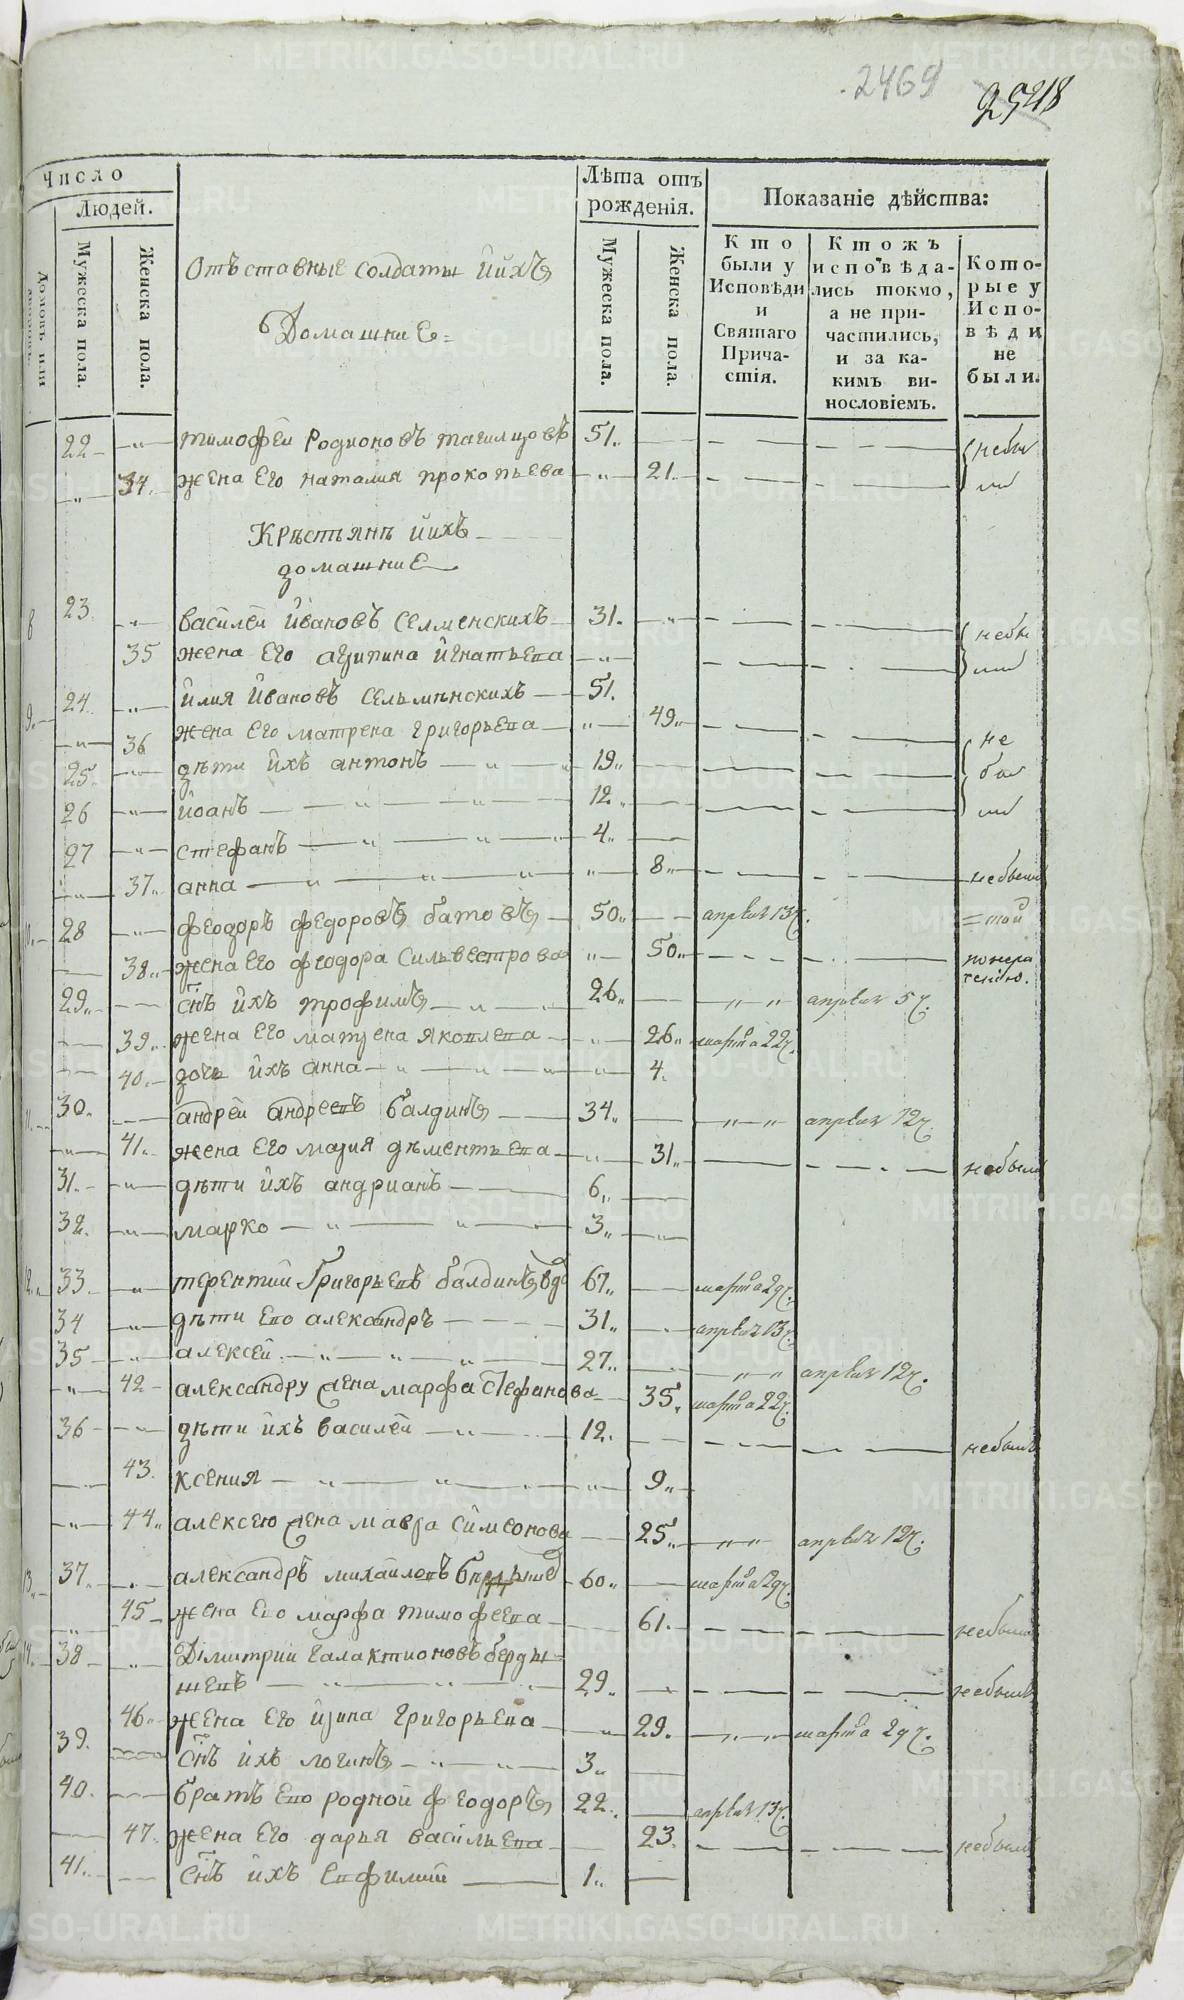 2469
218
Число
Людей.
Домовъ или
Мужеска пола.
Женска пола.
Отъставные солдаты Ӥйхъ
Домашние=
Лѣта отъ
рожденія.
Мужеска пола.
Женска пола.
Показаніе дѣйства:
Кто
были у
Исповѣди
и
Святаго
Прича-
стія.
Ктожъ
исповѣда-
лись токмо,
а не при-
частились,
и за ка-
кимъ ви-
нословіемъ.
Кото-
рые у
Испо-
вѣди
не
были.
22 тимофей Родионовъ тагилцовъ 51 небы
34 жена Его наталия прокопьева 21 ли
Крѣстьянѣ ӥихъ
домашние
8 23 василей ӥвановъ Селменскихъ 31 небы
35 жена Его агрипина ӥгнатьева ли
9 24 ӥлия ӥвановъ Селъмѣнскихъ 51
36 жена Его матрена григорьева 49 не
25 дѣти ӥхъ антонъ 19 бы
26 ӥоанъ 12 ли
27 стефанъ 4
37 анна 8 небыли
10 28 феодоръ федоровъ батовъ 50 апреля 13ч.
38 жена Его феодора Сильвестрова 50 понера
дению.
29 Снъ ӥхъ трофимъ 26 апреля 5ч.
39 жена Его матрена яковлева 26 марта 22ч.
40 дочь ӥхъ анна 4
11 30 андрей андреевъ балдинъ 34 апреля 12ч.
41 жена Его мария дѣментьева 31 небыли
31 дѣти ӥхъ андрианъ 6
32 марко 3
12 33 терентий Григорьевъ балдинъ вд 67 марта 29ч.
34 дѣти Его александръ 31 апреля 13ч.
35 алексей 27 апреля 12ч.
42 александру жена марфа Стефанова 35 марта 22ч.
36 дѣти ӥхъ василей 12 небыли
43 ксения 9
44 алексею жена мавра Симеонова 25 апреля 12ч.
13 37 александръ михайловъ 60 марта 29ч.
45 жена Его марфа тимофеева 61 небыли
14 38 Димитрий галактионовъ берды-
шевъ 29 небылъ
46 жена Его ӥрина григорьева 29 марта 29ч.
39 Снъ ӥхъ логинъ 3
40 братъ Его родной феодоръ 22 апреля 13ч.
47 жена Его дарья васильева 23 небыли
41 Снъ ӥхъ Евфимий 1